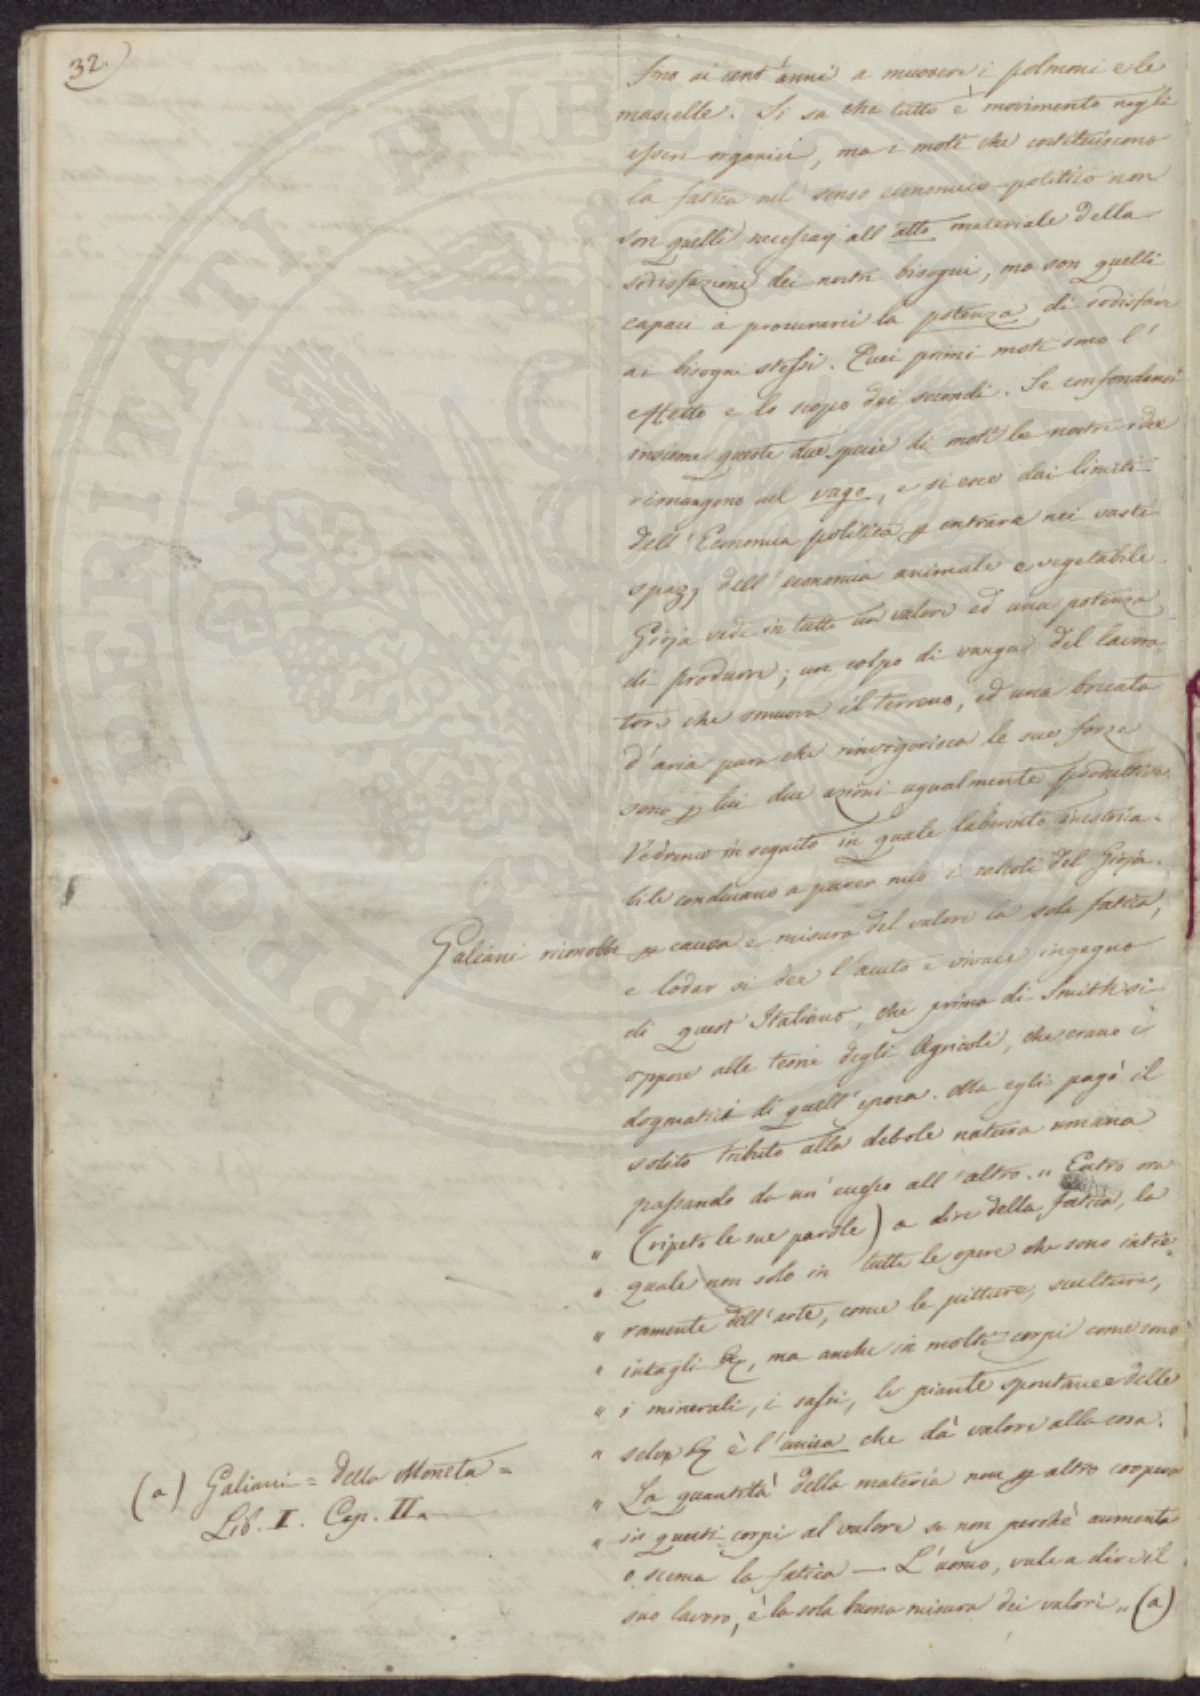 32.
sino ai cent'anni a muovere i polmoni e le
mascelle. Si sa che tutto è movimento negli
esseri organici, ma i moti che costituiscono
la fatica nel senso economico-politico non
son quelli necessarj all'atto materiale della
sodisfazione dei nostri bisogni, ma son quelli
capaci a procurarci la potenza di sodisfare
ai bisogni stessi. Quei primi moti sono l'
effetto e lo scopo dei secondi. Se confondansi
insieme queste due specie di moti le nostre idee
rimangono nel vago, e si esce dai limiti
dell'Economia politica p entrare nei vasti
spazj dell'economia animale e vegetabile.
Gioja vede in tutto un valore ed una potenza
di produrre; un colpo di vanga del lavora-
tore che smuova il terreno, ed una boccata
d'aria pura che rinvigorisca le sue forze
sono p lui due azioni ugualmente produttive.
Vedremo in seguito in quale laberinto inestrica-
bile conducano a parer mio i calcoli del Gioja.
Galiani riconobbe p causa e misura del valore la sola fatica,
e lodar si dee l'acuto e vivace ingegno
di quest'Italiano, che prima di Smith si
oppose alle teorie degli Agricoli, che erano i
dogmatici di quell'epoca. Ma egli pagò il
solito tributo alla debole natura umana
passando da un'eccesso all'altro. „ Entro ora
„ (ripeto le sue parole) a dire della fatica, la
„ quale non solo in tutte le opere che sono intie-
„ ramente dell'arte, come le pitture, sculture,
„ intagli &c, ma anche in molti corpi come sono
„ i minerali, i sassi, le piante spontanee delle
„ selve &c è l'unica che dà valore alla cosa.
„ La quantità della materia non p altro coopera
„ in questi corpi al valore se non perchè aumenta
o scema la fatica — L'uomo, vale a dire il
suo lavoro, è la sola buona misura dei valori „ (a)
(a) Galiani = Della Moneta =
Lib. I. Cap. II.
PROSPERITATI PVBLICAE